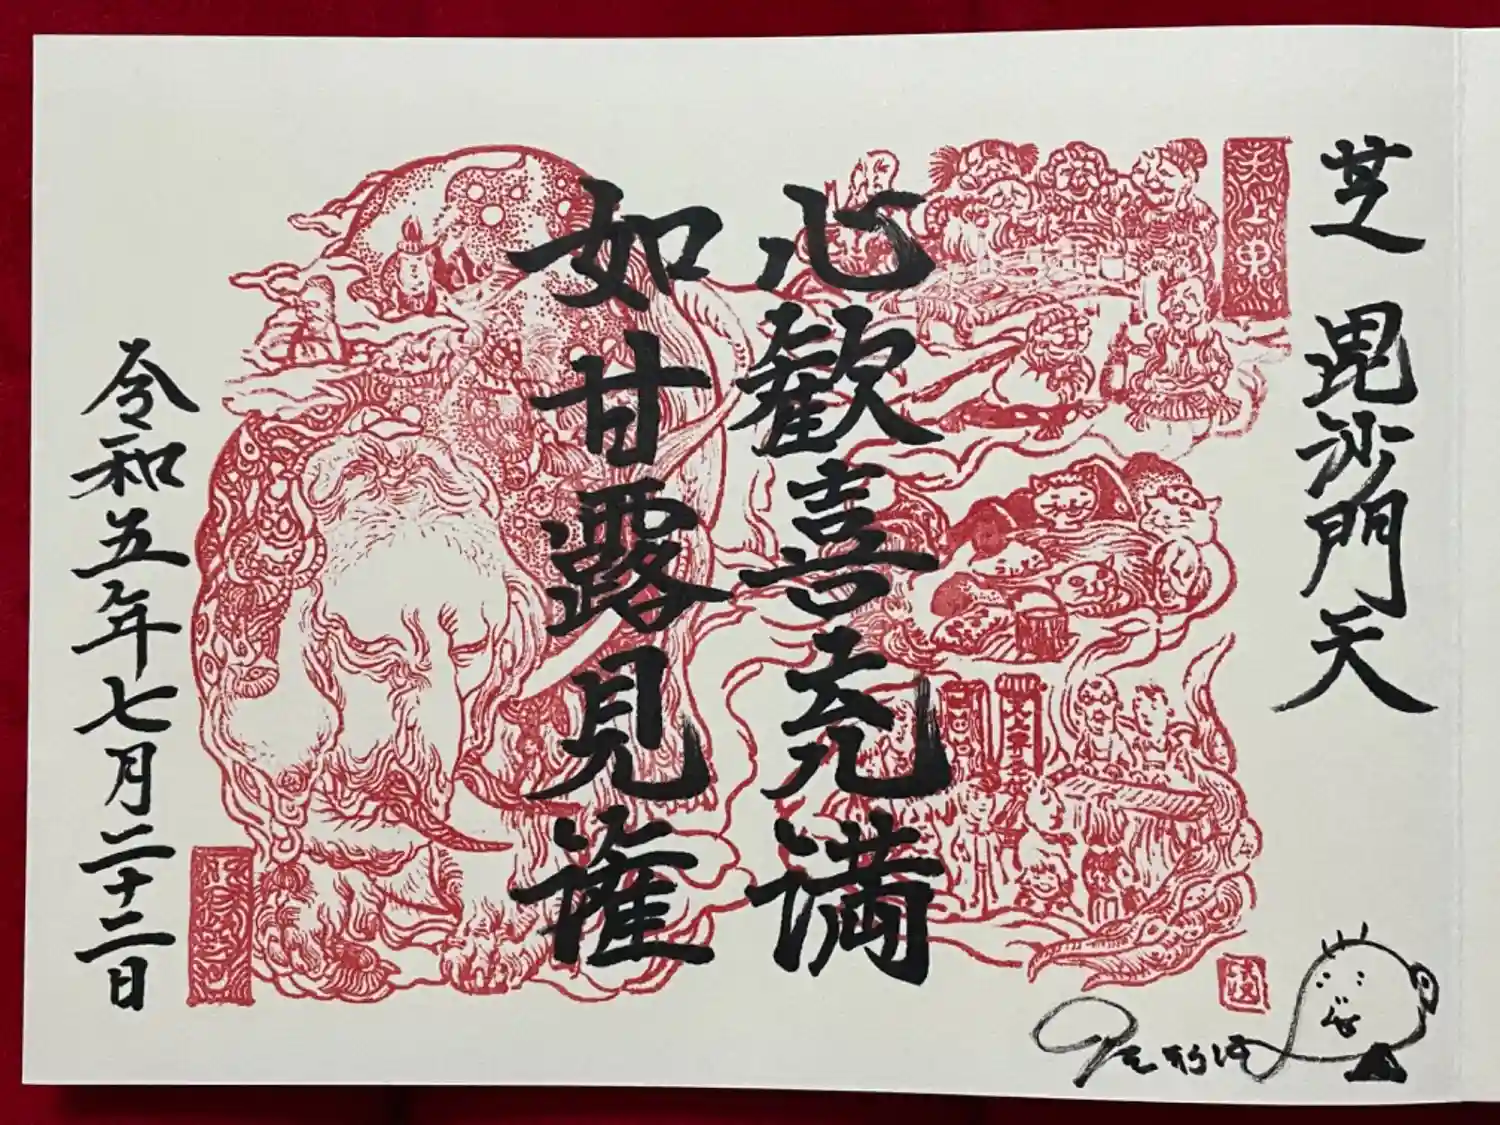 芝 毘沙門天
心歓喜充満
如甘露見潅
令和五年七月二十二日